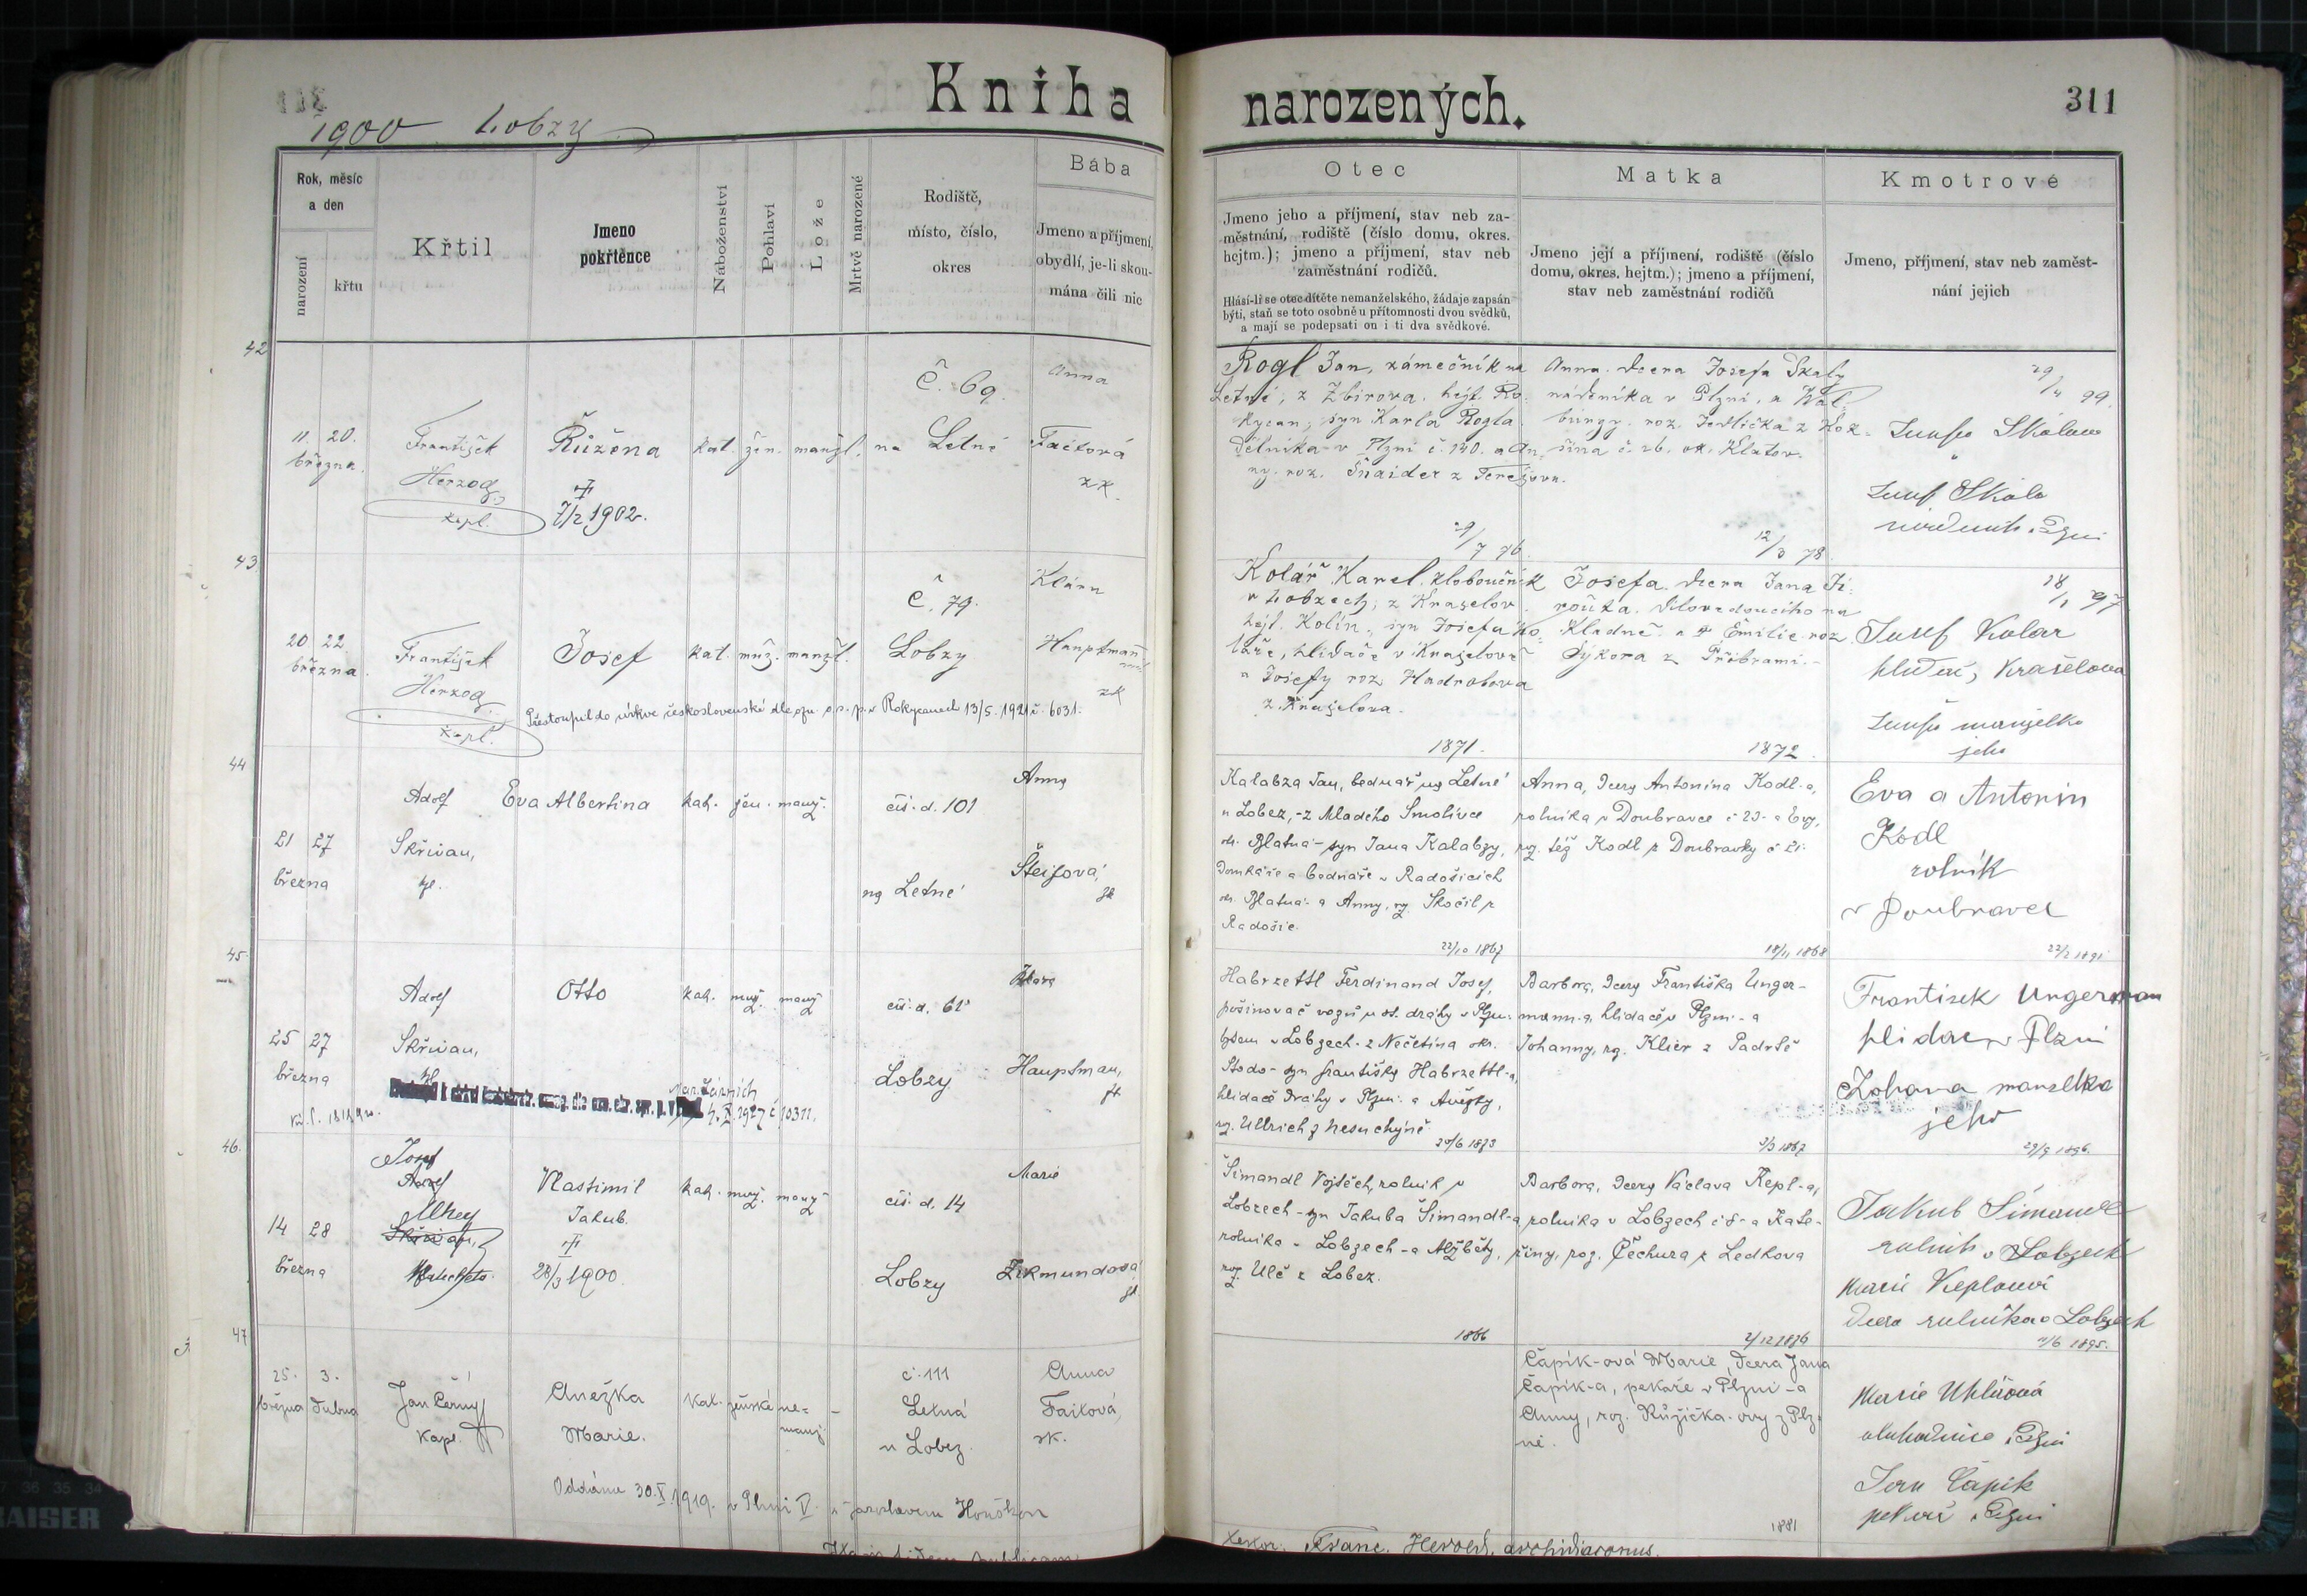 Kniha narozených.
311
1900 Lobzy
Rok, měsíc
a den
narození
křtu
Křtil
Jmeno
pokřtěnce
Náboženství
Pohlaví
Lože
Mrtvě narozené
Rodiště,
místo, číslo,
okres
Bába
Jmeno a příjmení,
obydlí, je-li skou-
mána čili nic
Otec
Jmeno jeho a příjmení, stav neb za-
městnání, rodiště (číslo domu, okres.
hejtm.); jmeno a příjmení, stav neb
zaměstnání rodičů.
Hlásí-li se otec dítěte nemanželského, žádaje zapsán
býti, staň se toto osobně u přítomnosti dvou svědků,
a mají se podepsati on i ti dva svědkové.
Matka
Jmeno její a příjmení, rodiště (číslo
domu, okres. hejtm.); jmeno a příjmení,
stav neb zaměstnání rodičů
Kmotrové
Jmeno, příjmení, stav neb zaměst-
nání jejich
42
11. 20.
března
František
Herzog
kapl.
Růžena
7/2 1902.
kat. žen. manžl.
Č. 69.
na Letné
Anna
Faitová
zk.
Rogl Jan, zámečník na
Letné, z Zbirova, hejt. Ro-
kycan, syn Karla Rogla
dělníka v Plzni č. 140. a An-
ny roz. Šnaider z Terešova.
29/7 76.
Anna dcera Josefa Skaly
nádeníka v Plzni, a Wal-
burgy roz. Jedlička z Kož-
šina č. 26. ok. Klatov.
12/3 78
29/4 99.
Josef Skála
43
20 22
března
František
Herzog
kapl.
Josef
kat. muž. manžl.
Č. 79.
Lobzy
Klára
Hauptman
zk
Přestoupil do církve československé dle ozn. o. s. p. v Rokycanech 13/5. 1921 č. 6031.
Kolář Karel, kloboučník
v Lobzech, z Krašelov.
hejt. Kolín, syn Josefa Ko-
láře, hlídače v Krašelově
a Josefy roz. Hadrabova
z Krašelova.
1871.
Josefa, dcera Jana Ji-
rouška
Kladně a Emilie roz.
Sýkora z Příbrami.
1872
18/1 97
Josef Kolar
hlídač, Krašelova
manželka
jeho
44
21 27
března
Adolf
Skřivan,
Eva Albertina
kat. žen. manž.
čís. d. 101
na Letné
Anna
Šteifová,
zk
Kalabza Jan, bednář na Letné
u Lobez, - z Mladého Smolivce
ok. Blatná - syn Jana Kalabzy,
domkáře a bednáře v Radošicích
ok. Blatná - a Anny, roz. Skočil z
Radošic.
22/10 1867
Anna, dcera Antonína Kodl-a,
rolníka v Doubravce č 23 - a Evy,
roz. též Kodl z Doubravky č 21.
18/11 1868
Eva a Antonin
Kodl
rolník
v Doubravce
22/2 1891
45
25 27
března
Adolf
Skřivan,
Otto
kat. muž. manž
čís. d. 61
Lobzy
Klara
Hauptman,
zk
4. X. 1927 č 10311.
Habrzettl Ferdinand Josef,
pošinovač vozů u st. dráhy v Plzni
bytem v Lobzech - z Nečetína okr.
Stodo - syn Františka Habrzettl-a,
hlídače dráhy v Plzni - a Anežky,
roz. Ullrich z Nesuchyně
20/6 1873
Barbora, dcera Františka Unger-
mann-a, hlídače v Plzni - a
Johanny, roz. Klier z Padrtě
2/3 1867
František Ungerman
hlidac v Plzni
Johana manzelka
jeho
29/9 1896.
46.
14 28
března
Josef
Adolf
Uhey
Skřivan,
Vlastimil
Jakub.
28/3 1900.
kat. muž. manž
čís. d. 14
Lobzy
Marie
Zikmundova
Šimandl Vojtěch, rolník v
Lobzech - syn Jakuba Šimandl-a
rolníka v Lobzech - a Alžběty,
roz. Ulč z Lobez.
1866
Barbora, dcera Václava Kepl-a,
rolníka v Lobzech č 8 - a Kate-
řiny, roz. Čechura z Ledkova
2/12 1876
Jakub Šimandl
rolník v Lobzech
Marie Keplová
dcera rolníka v Lobzech
11/6 1895.
47
25. 3.
března dubna
Jan Černý
kapl.
Anežka
Marie.
kat. ženské ne-
manž.
č. 111
Letná
u Lobez
Anna
Faitová,
zk.
Oddána 30. X. 1919. v Plzni V. s Jaroslavem
Čapík-ová Marie, dcera Jana
Čapík-a, pekaře v Plzni - a
Anny, roz. Růžička-ovy z Plz-
ně.
1881
Marie Uhlířová
Jan Čapík
pekař v Plzni
Franc. Herold, archidiaconus.